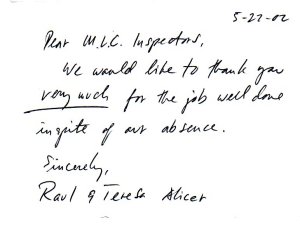 5-22-02
Dear M.I.C. Inspectors,
We would like to thank you
very much for the job well done
inspite of our absence.
Sincerely,
Raul & Teresa Alicer